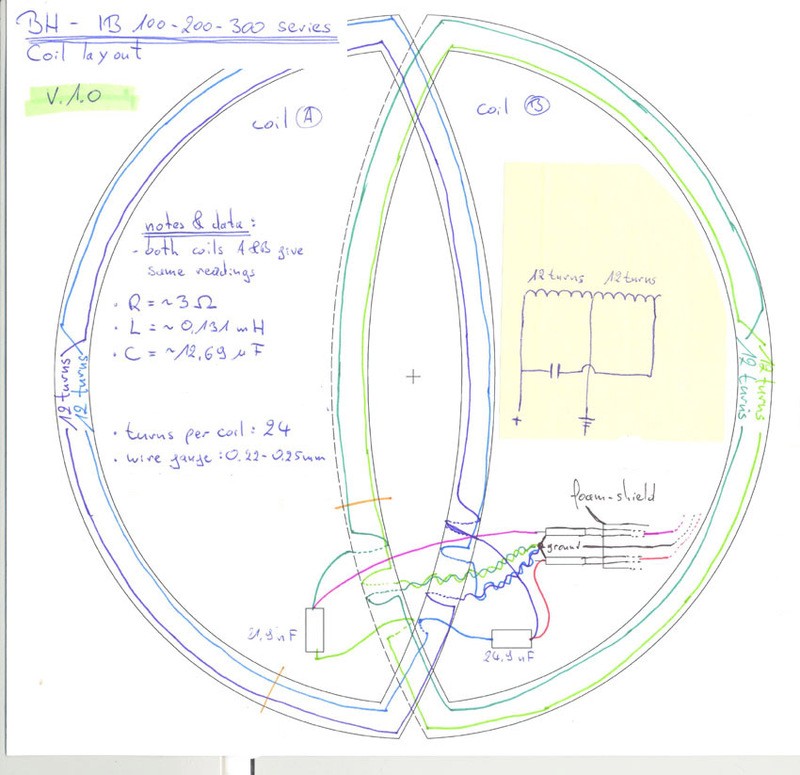 BH - IB 100-200-300 series
Coil layout
V.1.0
coil A
coil B
notes & data:
- both coils A&B give
same readings
• R = ~3 Ω
• L = ~ 0,131 mH
• C = ~12,69 µF
• turns per coil: 24
• wire gauge: 0.22-0.25mm
12 turns
12 turns
12 turns 12 turns
+
12 turns
12 turns
foam-shield
ground
nF
24,9 nF